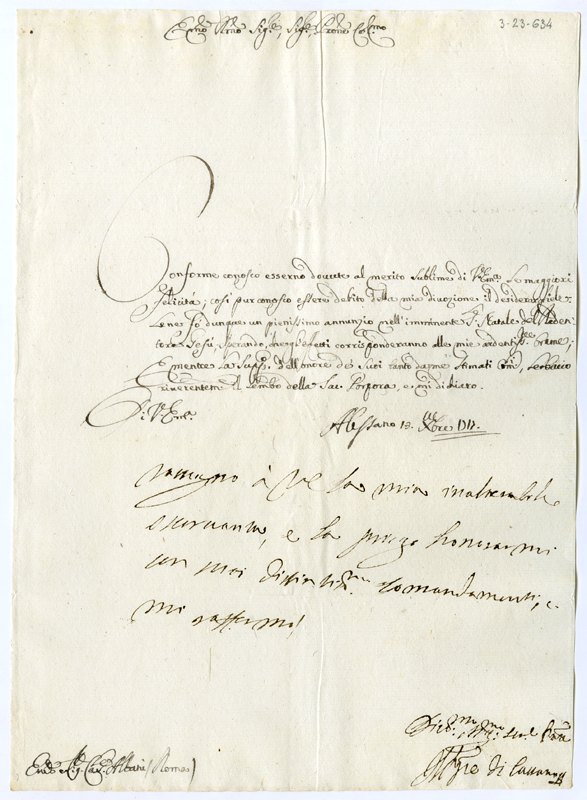 3-23-634
Em̃o Rmo Sig.e, Sig.e, Prone Col.mo
Conforme conosco esserno dovute al merito sublime di V. Em.a le maggiori
felicità; così pur conosco essere debito della mia divozione il desiderargliele.
Le ne fò dunque un pienissimo annunzio nell'imminente S. Natale del Reden-
tore Gesù, sperando, che gl'effetti corrisponderanno alle mie ardentis.me brame;
E mentre la supp.co dell'onore de suoi tanto da me stimati Com.di, le bacio
riverentem.te il lembo della Sac. Porpora, e mi dichiaro.
Di V. Em.a
Alessano 13. Xbre 1717.
à V.E. la mia inalterabile
osservanza, e la priego honorarmi
con suoi distintis.mi comandamenti, e
mi raffermo
Div.mo
di Cassano
Em.o Sig. Car. Albani (Roma)